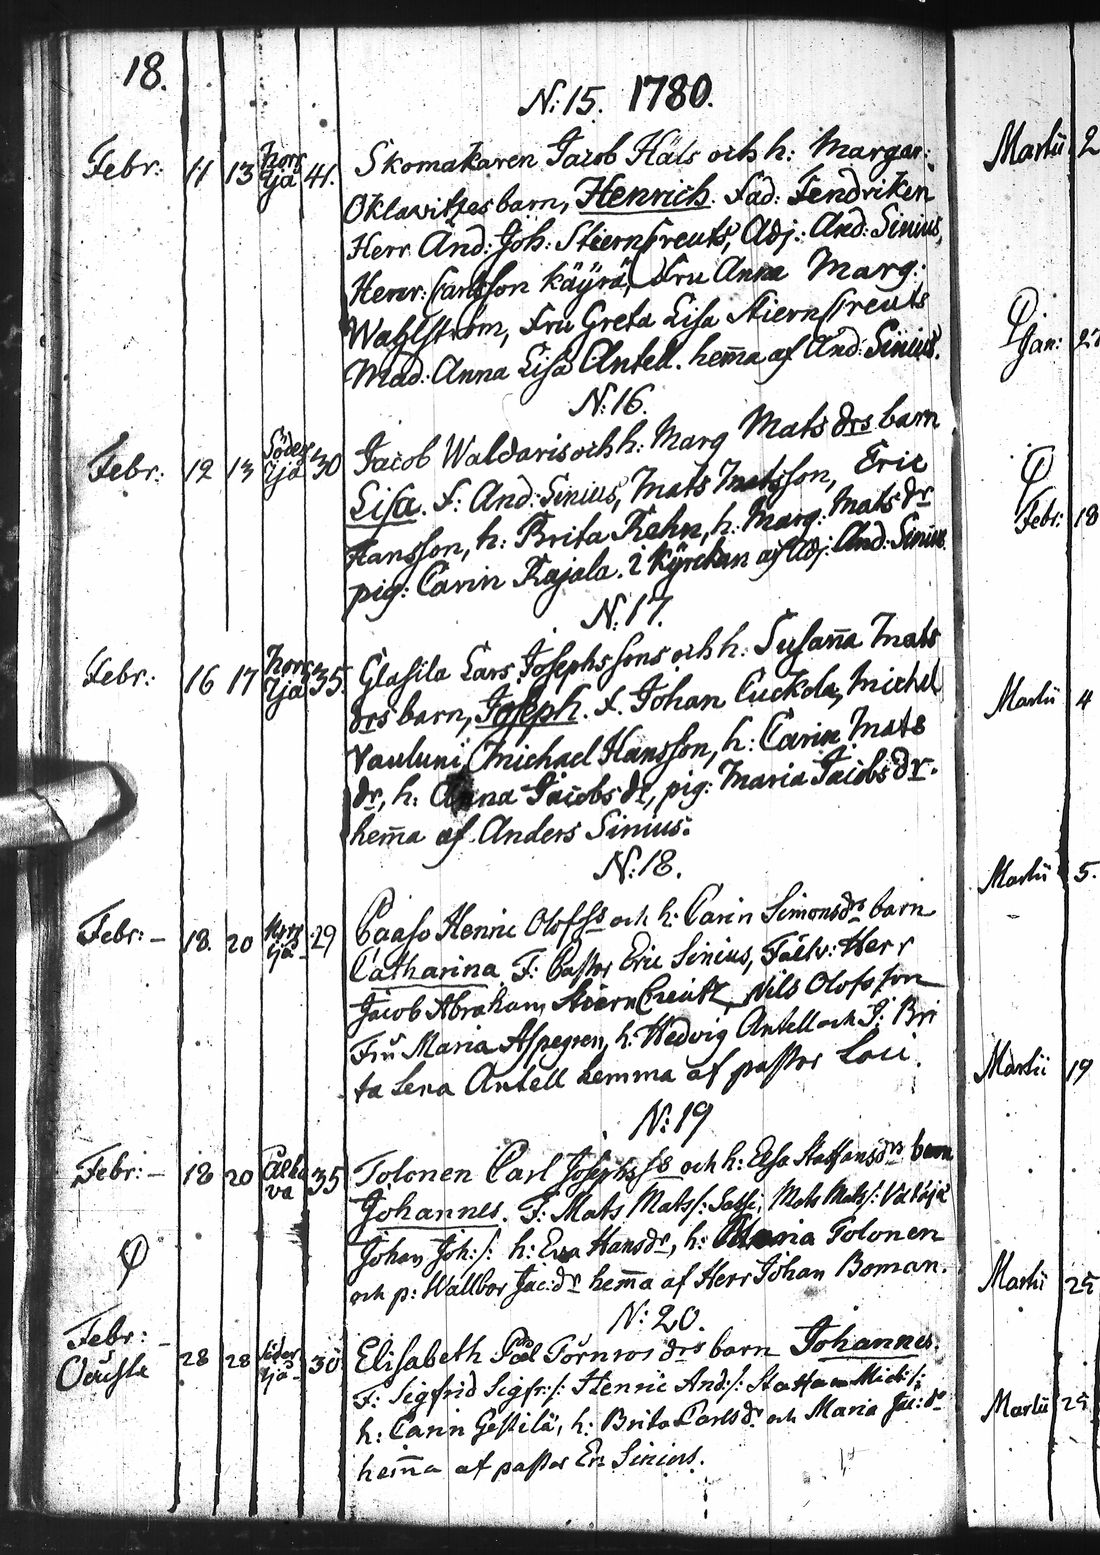 18.
N:15. 1780.
Febr: 11 13 Norr ljä 41. Skomakaren Jacob Häls och h: Margar:
Oklavitzes barn, Henrich. Fad: Fendriken
Herr And: Joh: StiernCreuts, Adj: And: Sinius,
Henr: Carlsson Käyrä, Fru Anna Marg:
Wahlström, Fru Greta Lisa StiernCreuts
Mad: Anna Lisa Antell. hem̄a af And: Sinius.
N:16.
Febr: 12 13 Söder ljä 30 Jacob Waldaris och h: Marg Mats drs barn
Lisa. F: And: Sinius, Mats Matsson, Eric
Hansson, h: Brita Rahn, h: Marg: Mats dr
pig: Carin Kajala. i Kyrckan af Adj: And: Sinius
N:17.
Febr: 16 17 Norr ljä 35. Glasila Lars Josephssons och h: Susan̄a Mats
drs barn, Joseph. F. Johan Cuckola, Michel
Vauluni, Michael Hansson, h: Carin Mats
dr, h: Anna Jacobs dr, pig: Maria Jacobs dr.
hem̄a af Anders Sinius.
N:18.
Febr: – 18. 20 Norr ljä 29 Paaso Henric Olofss och h: Carin Simonsdrs barn
Catharina F: Pastor Eric Sinius, Fältv: Herr
Jacob Abraham StiernCreutz, Nils Olofsson
Fru Maria Aspegren, h: Hedvig Antell och J: Bri
ta Lena Antell hemma af pastor Loci.
N:19
Febr: – 18 20 35 Tolonen Carl Josephss och h: Elsa Staffansdrs barn
Johannes. F: Mats Mats/: Mats Mats/:
Johan Joh:/: h: Eva Hansdr, h: Maria Tolonen
och p: Wallbor Jac:dr hem̄a af Herr Johan Boman.
N: 20.
Febr: – 28 28 Söder ljä 30 Elisabeth Törnros drs barn Johannes.
Oächta
F: Sigfrid Sigfr:/: Henric And:/: Staffan Mich:/:
h: Carin Gestilä, h: Brita Carlsdr och Maria Jac:dr
hem̄a af pastor Er: Sinius.
Martii 2
Jan: 27
Febr: 18
Martii 4
Martii 5.
Martii 19
Martii 25
Martii 25